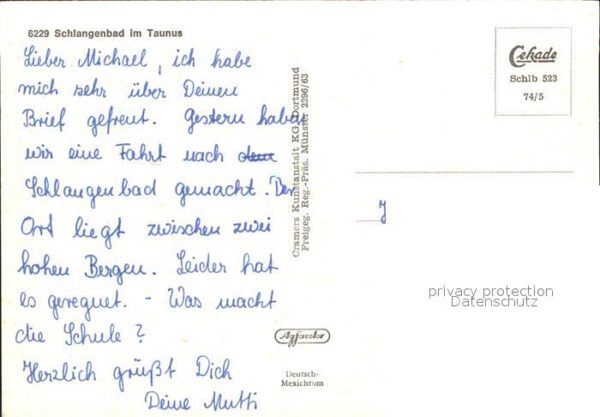 6229 Schlangenbad im Taunus
Lieber Michael, ich habe
mich sehr über Deinen
Brief gefreut. Gestern haben
wir eine Fahrt nach dem
Schlangenbad gemacht. Der
Ort liegt zwischen zwei
hohen Bergen. Leider hat
es geregnet. - Was macht
die Schule?
Herzlich grüßt Dich
Deine Mutti
Cramers Kunstanstalt KG, Dortmund
Freigeg. Reg.-Präs. Münster 2396/63
Agfacolor
Deutsch-
Mexichrom
Cekade
Schlb 523
74/5
J
privacy protection
Datenschutz